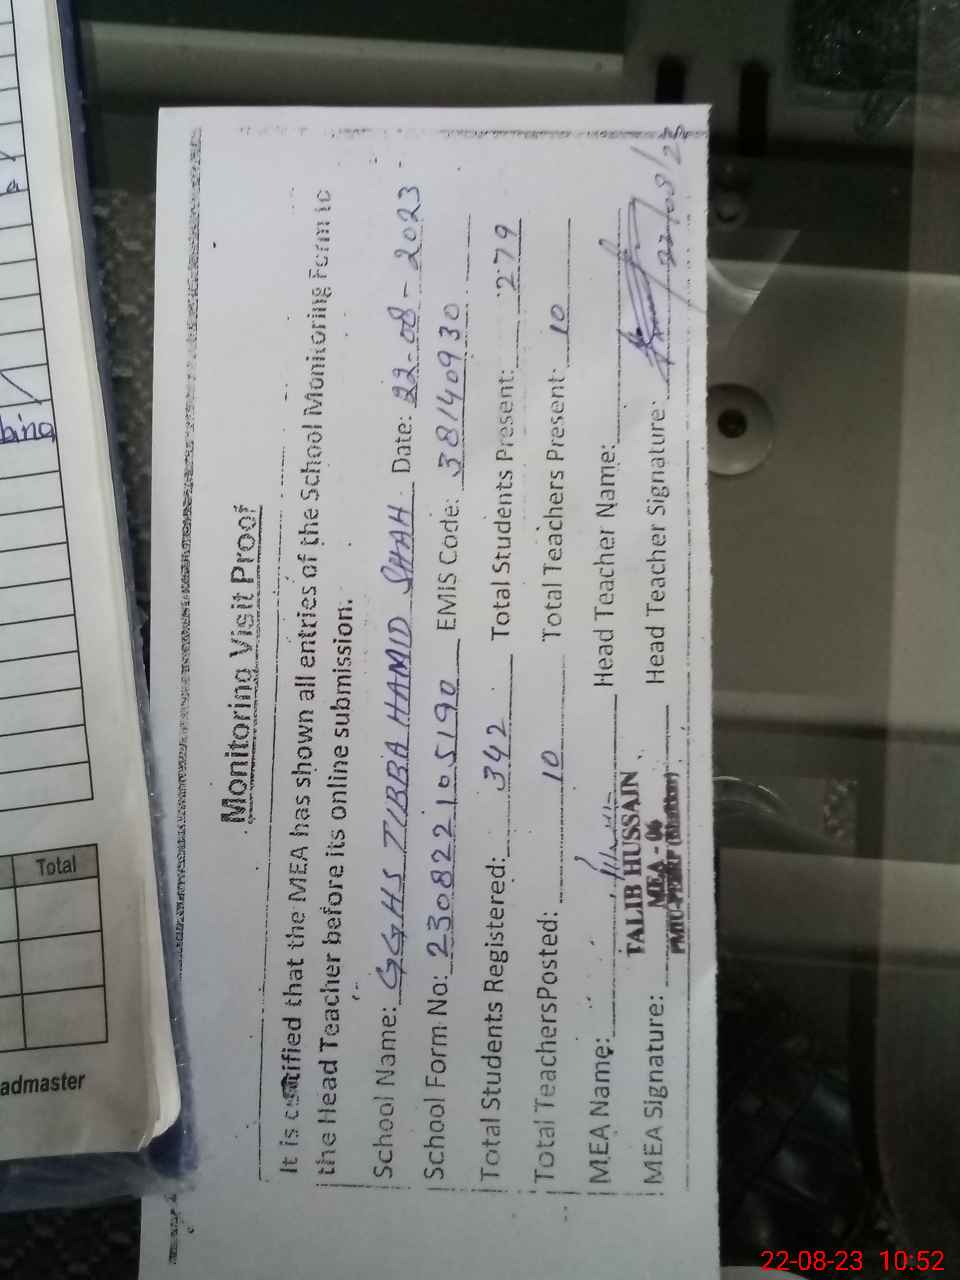 Monitoring Visit Proof
It is certified that the MEA has shown all entries of the School Monitoring Form to
the Head Teacher before its online submission.
School Name: GGHS TUBBA HAMID SHAH Date: 22-08-2023
School Form No: 230822105190 EMIS Code: 38140930
Total Students Registered: 342 Total Students Present: 279
Total TeachersPosted: 10 Total Teachers Present: 10
MEA Name: Head Teacher Name:
TALIB HUSSAIN
MEA - 06
MEA Signature: Head Teacher Signature: 22/08/23
Total
admaster
22-08-23 10:52